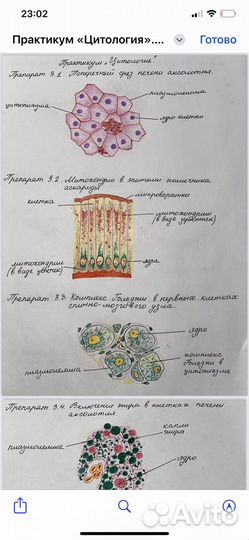 23:02
Практикум «Цитология»....
Готово
Практикум „Цитология"
Препарат 3.1. Поперечный срез печени аксолотля.
плазмолемма
цитоплазма
ядро клетки
Препарат 3.2. Митохондрии в эпителии кишечника
аскариды
микроворсинки
клетка
митохондрии
(в виде
митохондрии
(в виде
ядра
Препарат 3.3. Комплекс Гольджи в нервных клетках
спинно-мозгового узла.
ядро
комплекс
Гольджи в
цитоплазме
плазмолемма
Препарат 3.4. Включения жира в клетках печени
аксолотля.
капли
жира
плазмолемма
ядро
Avito